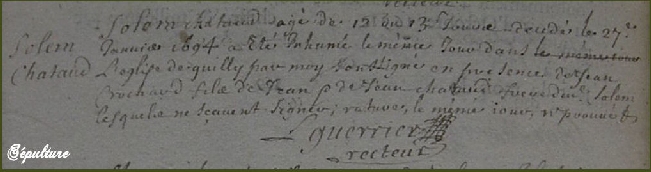 Solem chataud agé de 12 ou 13 decedé le 27e
Janvier 1694 a eté Inhumé le même Jour dans le même jour
L'eglise de quilly par moy soussigné en presence de Jean
Rochard fils de Jean & de Jean chataud frere dud. Solem
lesquels ne sçavent signer, rature, le même jour, approuvé
Solem
Chataud
L guerrier
recteur
Sépulture